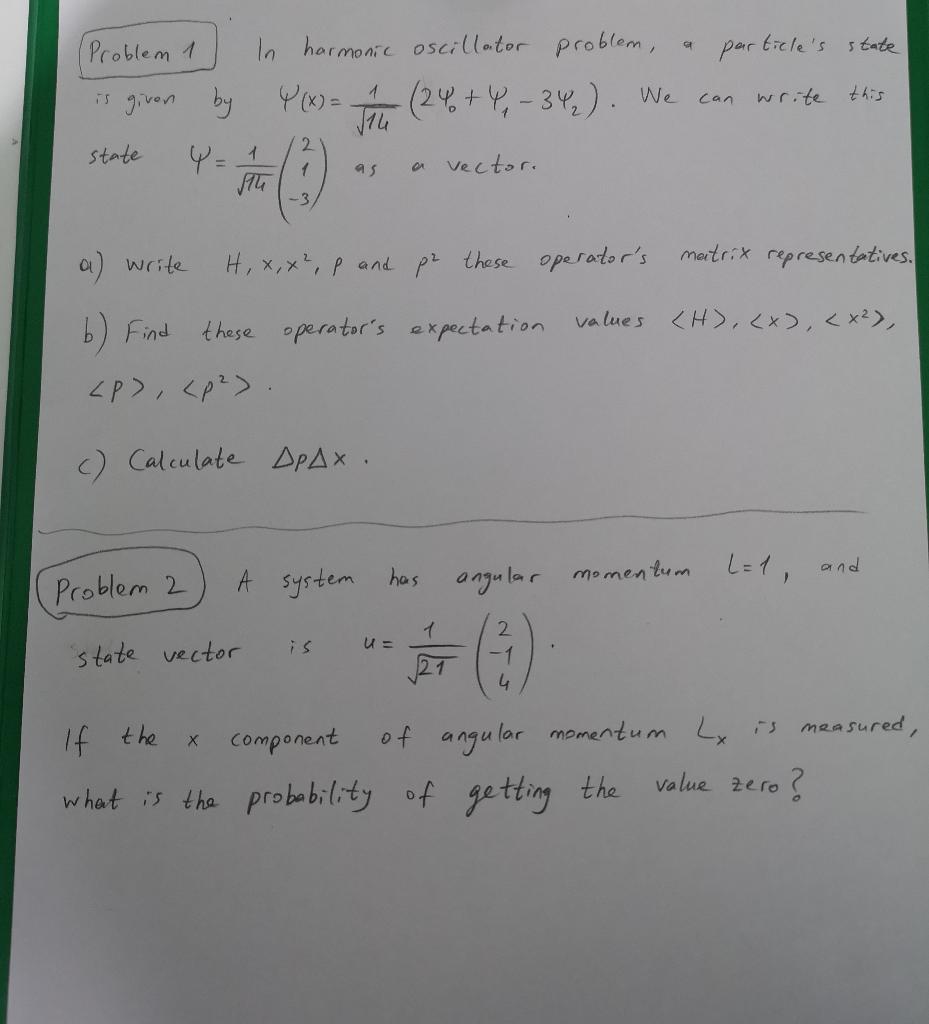 Problem 1 In harmonic oscillator problem, a particle's state
is given by Ψ(x) = 1/√14 (2Ψ₀ + Ψ₁ - 3Ψ₂). We can write this
state Ψ = 1/√14 (2 1 -3) as a vector.
a) write H, x, x², p and p² these operator's matrix representatives.
b) Find these operator's expectation values <H>, <x>, <x²>,
<p>, <p²>.
c) Calculate ΔpΔx.
Problem 2 A system has angular momentum L=1, and
state vector is u = 1/√21 (2 -1 4).
If the x component of angular momentum Lₓ is measured,
what is the probability of getting the value zero?